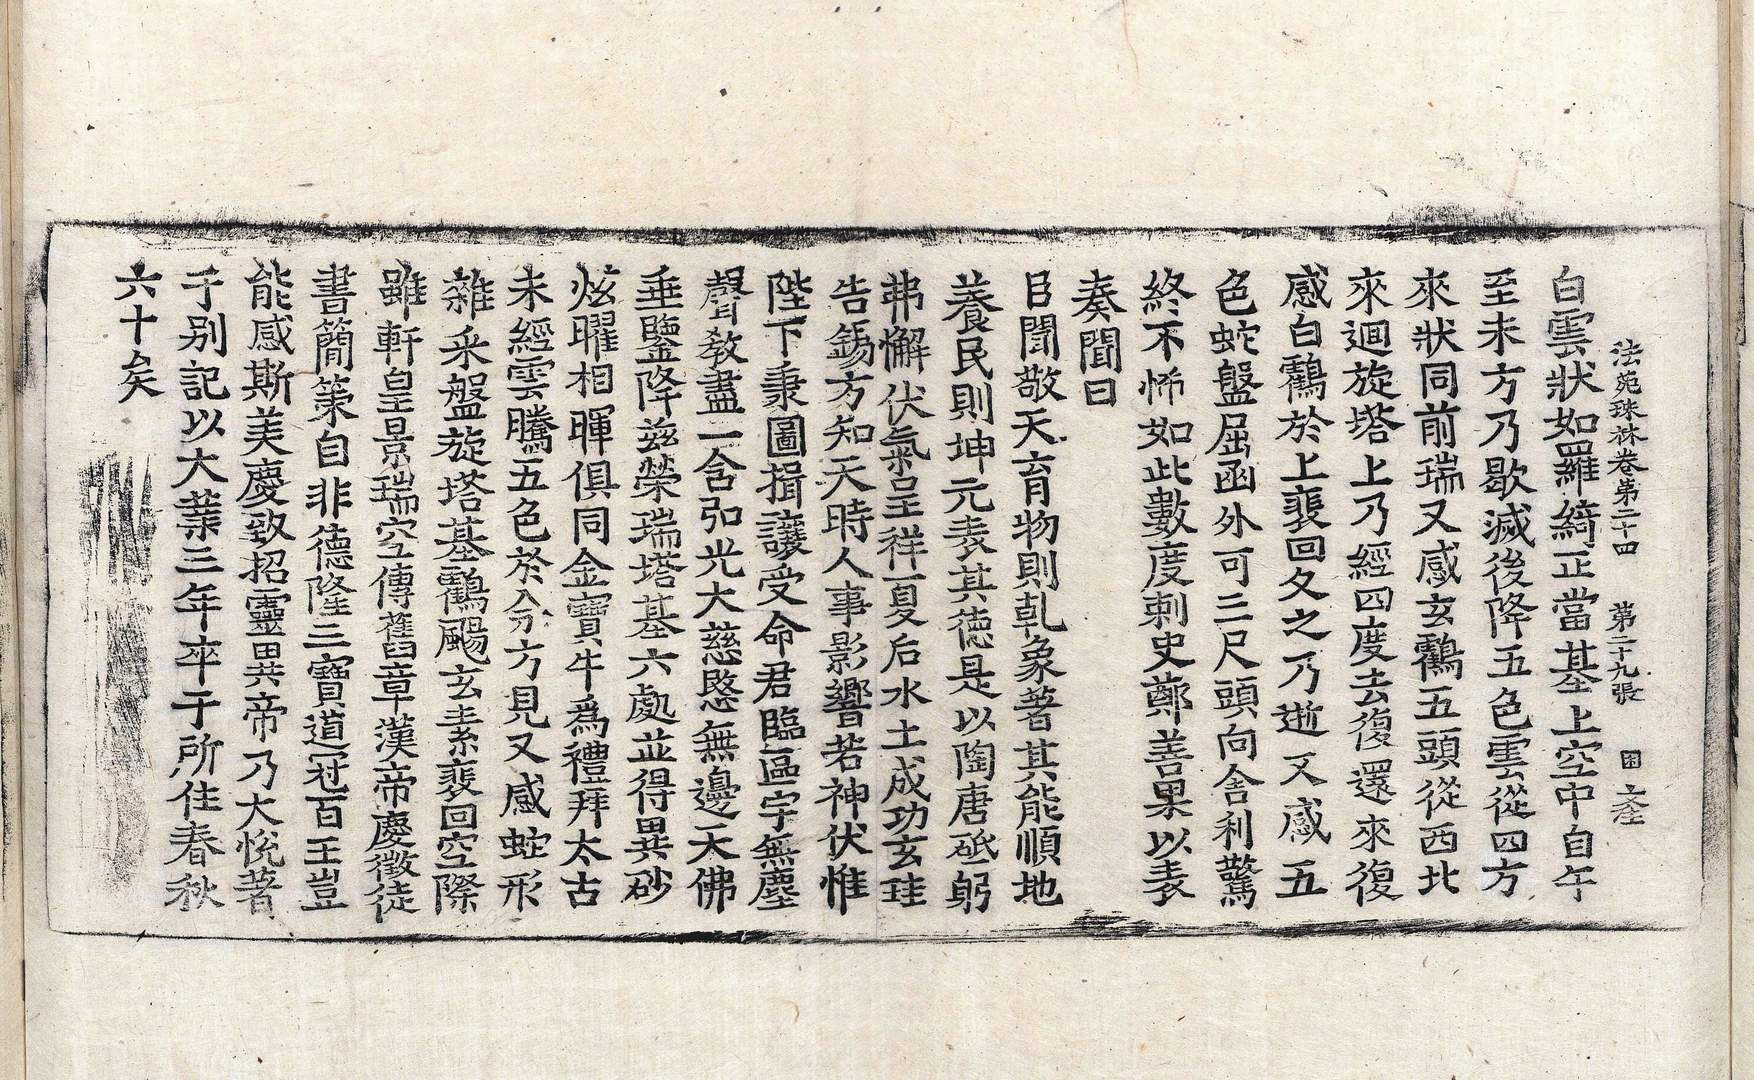 法苑珠林卷第二十四　第二十九張　困
白雲狀如羅綺正當基上空中自午
至未方乃歇滅後降五色雲從四方
來狀同前瑞又感玄鶴五頭從西北
來迴旋塔上乃經四度去復還來復
感白鶴於上裴回久之乃逝又感五
色蛇盤屈函外可三尺頭向舍利驚
終不怖如此數度刺史鄭善果以表
奏聞曰
臣聞敬天育物則乹象著其能順地
養民則坤元表其德是以陶唐砥躬
弗懈伏氣呈祥夏后水土成功玄珪
告錫方知天時人事影響若神伏惟
陛下秉圖揖讓受命君臨區宇無塵
聲教盡一含弘光大慈愍無邊天佛
垂鑒降茲榮瑞塔基六處並得異砂
炫曜相暉俱同金寶牛爲禮拜太古
未經雲騰五色於今方見又感蛇形
雜采盤旋塔基鶴颺玄素裴回空際
雖軒皇景瑞空傳舊章漢帝慶徵徒
書簡策自非德隆三寶道冠百王豈
能感斯美慶致招靈異帝乃大悅著
于别記以大業三年卒于所住春秋
六十矣